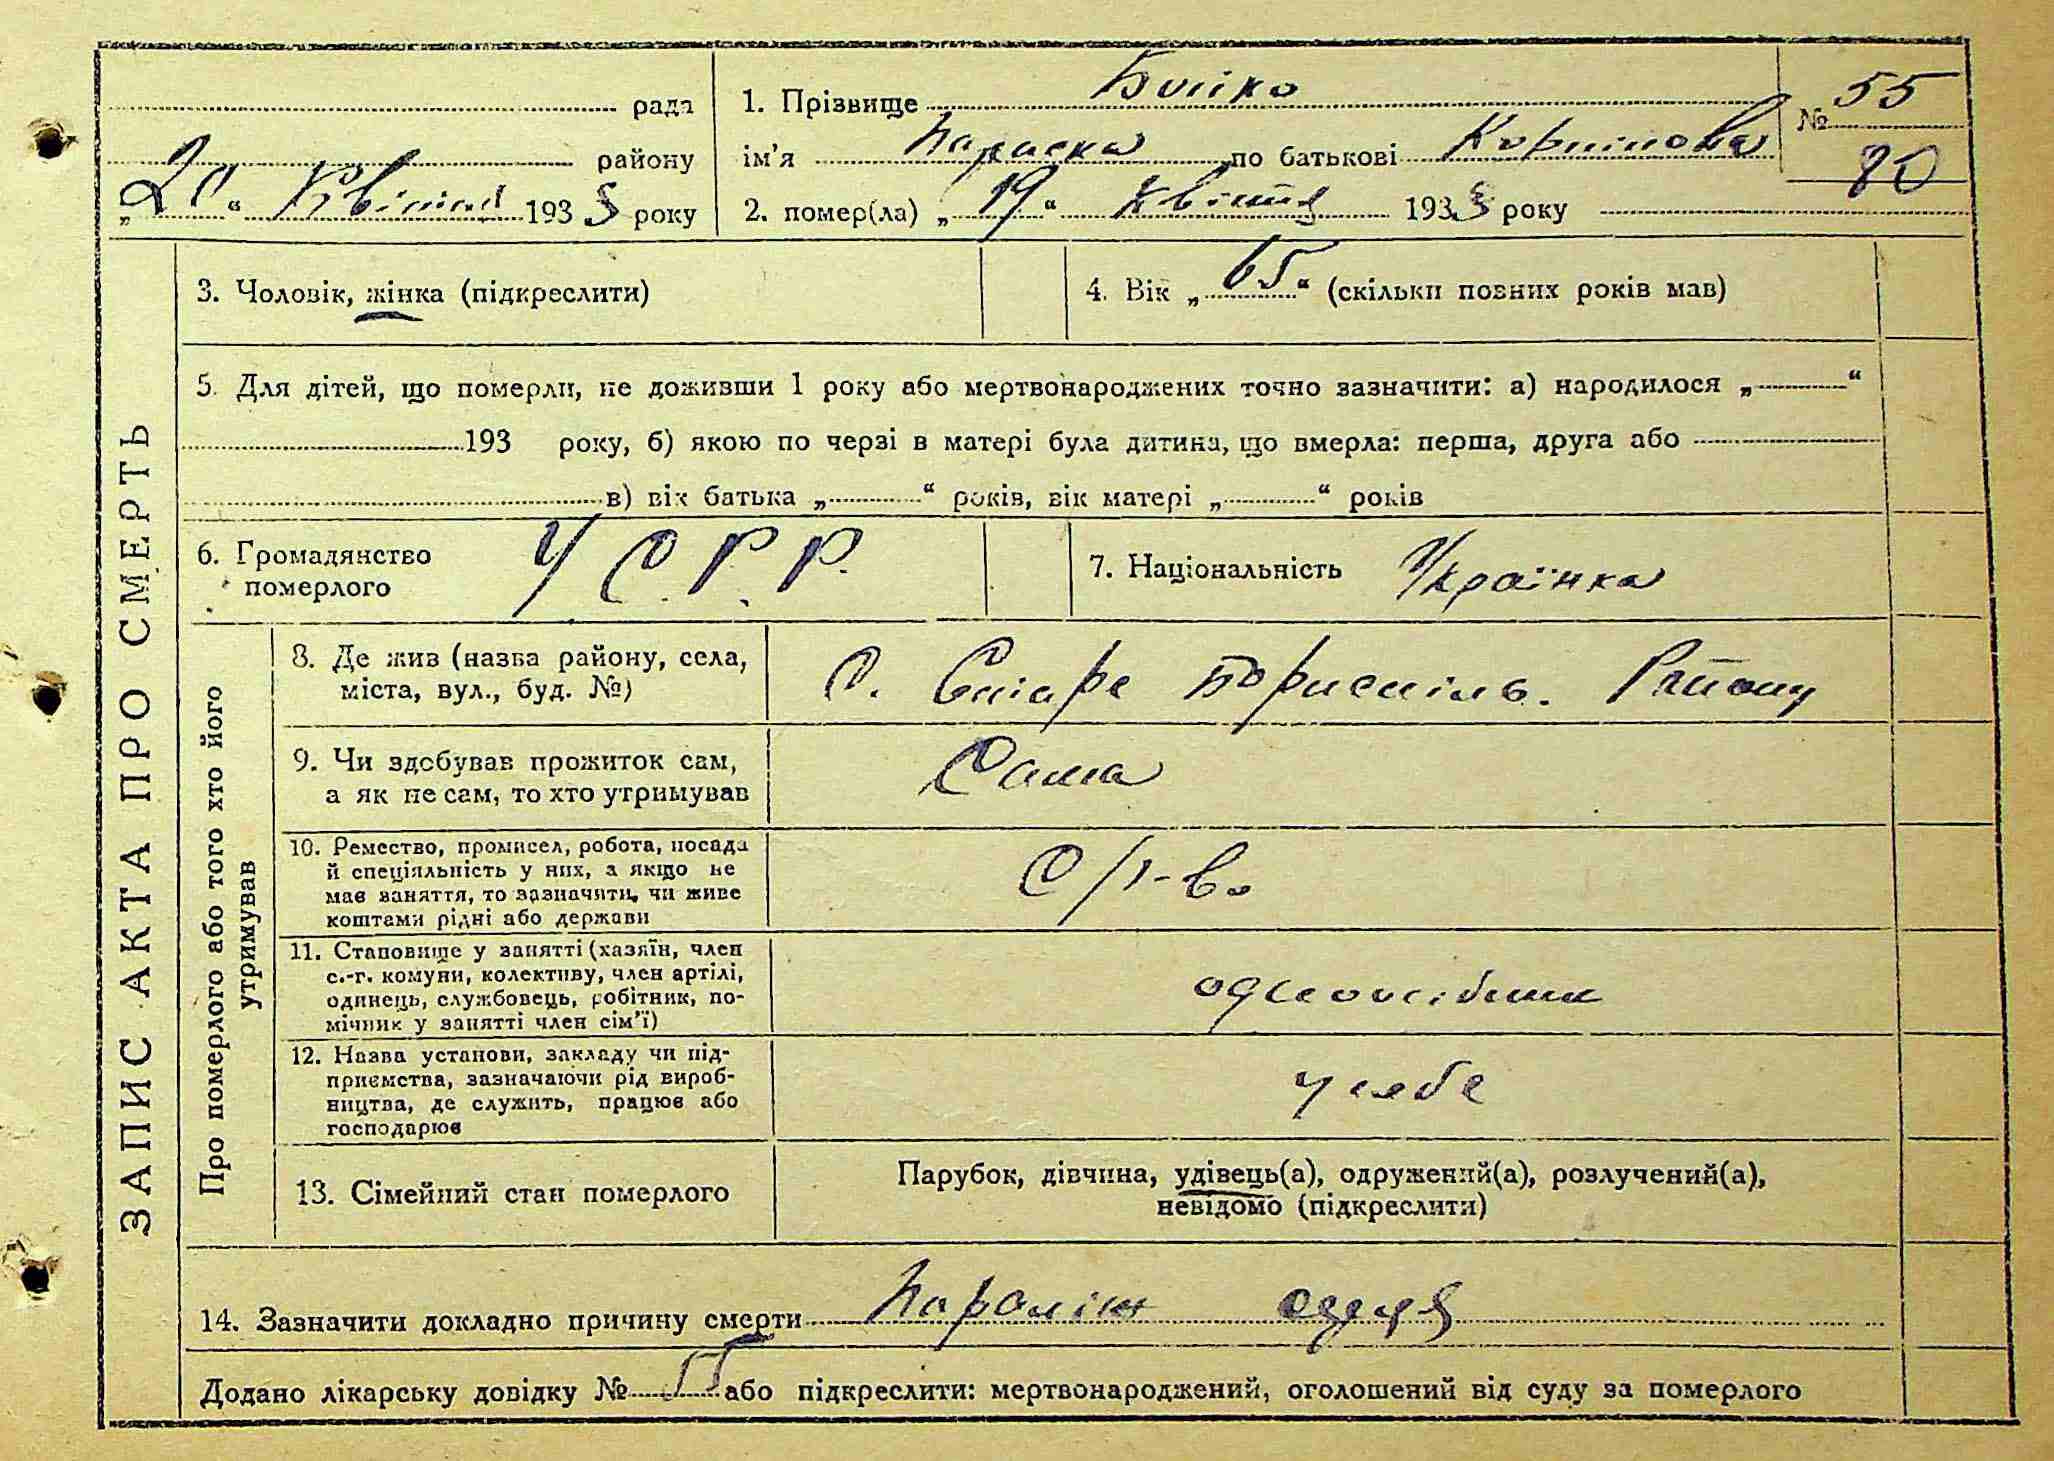 рада
району
„20“ Квітня 1933 року
1. Прізвище Бойко
№ 55
80
ім'я Параска по батькові Корніїовна
2. помер(ла) „19“ Квітня 1933 року
ЗАПИС АКТА ПРО СМЕРТЬ
3. Чоловік, жінка (підкреслити)
4. Вік „65“ (скільки повних років мав)
5. Для дітей, що померли, не доживши 1 року або мертвонароджених точно зазначити: а) народилося „ “
193 року, б) якою по черзі в матері була дитина, що вмерла: перша, друга або
в) вік батька „ “ років, вік матері „ “ років
6. Громадянство
померлого
У С. Р. Р.
7. Національність Українка
Про померлого або того хто його
утримував
8. Де жив (назва району, села,
міста, вул., буд. №)
С. Старе Бориспіль. Району
9. Чи здобував прожиток сам,
а як не сам, то хто утримував
Сама
10. Ремество, промисел, робота, посада
й спеціяльність у них, а якщо не
має заняття, то зазначити, чи живе
коштами рідні або держави
С/г-во
11. Становище у занятті (хазяїн, член
с.-г. комуни, колективу, член артілі,
одинець, службовець, робітник, по-
мічник у занятті член сім'ї)
одноосібник
12. Назва установи, закладу чи під-
приємства, зазначаючи рід вироб-
ництва, де служить, працює або
господарює
у себе
13. Сімейний стан померлого
Парубок, дівчина, удівець(а), одружений(а), розлучений(а),
невідомо (підкреслити)
14. Зазначити докладно причину смерти Параліж
Додано лікарську довідку № 55 або підкреслити: мертвонароджений, оголошений від суду за померлого